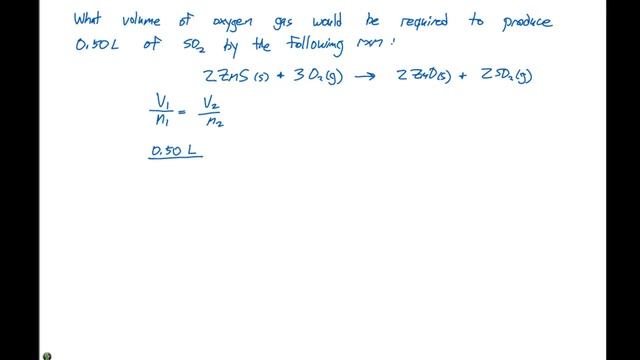 What volume of oxygen gas would be required to produce
0.50L of SO₂ by the following rxn:
2ZnS(s) + 3O₂(g) → 2ZnO(s) + 2SO₂(g)
V₁/n₁ = V₂/n₂
0.50 L